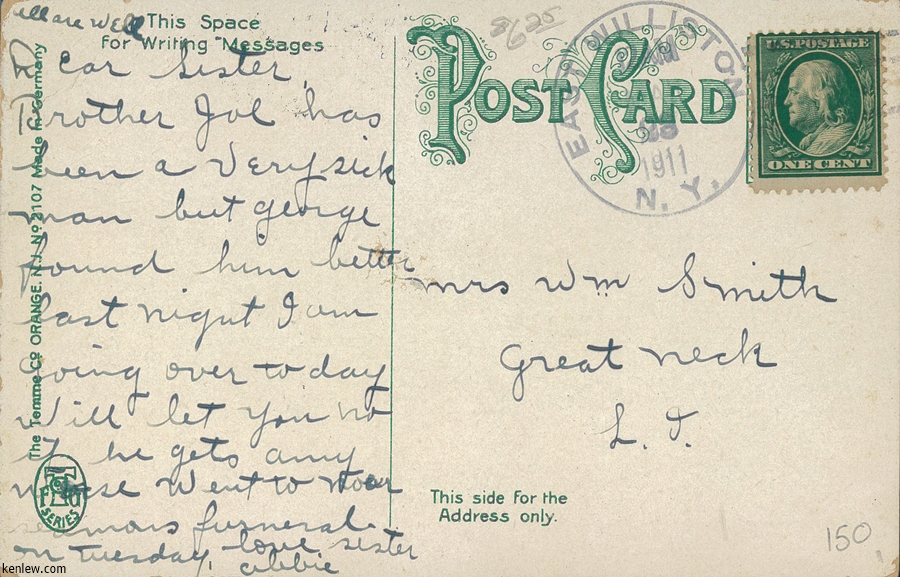 all are well
This Space
for Writing Messages
Dear Sister,
Brother Jol has
been a Very sick
man but george
found him better
last night I am
Going over to day
Will let you no
if he gets amy
worse Went to
furneral
on Tuesday, love sister
abbie
The Temme Co ORANGE, N.J. No 2107 Made in Germany
SERIES
8625
POST CARD
EAST WILLISTON
1911
N. Y.
U.S. POSTAGE
ONE CENT
mrs Wm Smith
Great neck
L. I.
This side for the
Address only.
150
kenlew.com